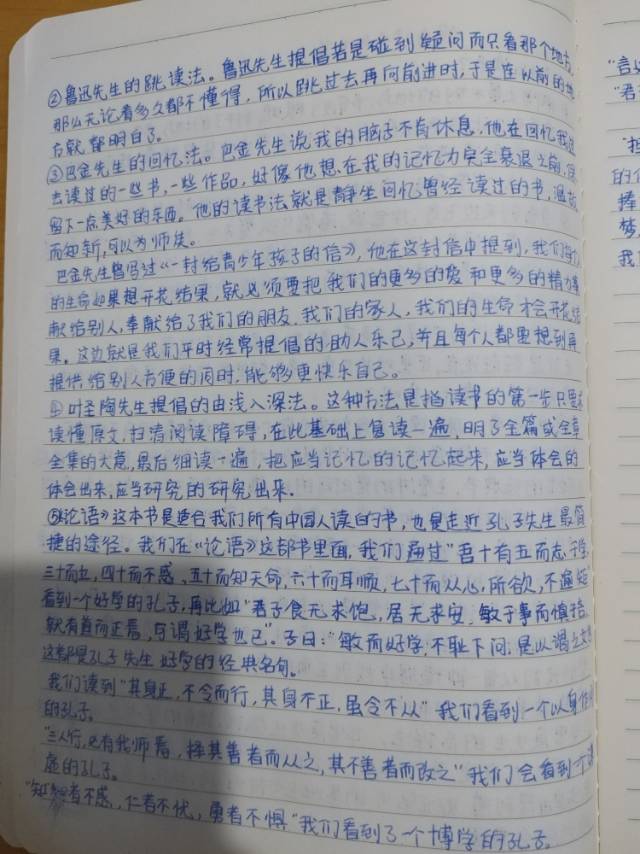 ②鲁迅先生的跳读法。鲁迅先生提倡若是碰到疑问而只看那个地方
那么无论看多久都不懂得,所以跳过去再向前进时,于是在以前的地
方就都明白了。
③巴金先生的回忆法。巴金先生说我的脑子不肯休息,他在回忆我过
去读过的一些书,一些作品,好像他想在我的记忆力完全衰退之前,
留下一点美好的东西。他的读书法就是静坐回忆曾经读过的书,温故
而知新,可以为师矣。
巴金先生曾写过《一封给青少年孩子的信》,他在这封信中提到,我们
的生命如果想开花结果,就必须要把我们的更多的爱和更多的精力
献给别人,奉献给了我们的朋友,我们的家人,我们的生命才会开花结
果。这边就是我们平时经常提倡的助人乐己,并且每个人都要想到再
提供给别人方便的同时,能够更快乐自己。
④叶圣陶先生提倡的由浅入深法。这种方法是指读书的第一步只要求
读懂原文,扫清阅读障碍,在此基础上复读一遍,明了全篇或全章
全集的大意,最后细读一遍,把应当记忆的记忆起来,应当体会的
体会出来,应当研究的研究出来.
⑤《论语》这本书是适合我们所有中国人读的书,也是走近孔子先生最简
捷的途径。我们在《论语》这部书里面,我们通过“吾十有五而志于学,
三十而立,四十而不惑,五十而知天命,六十而耳顺,七十而从心,所欲,不逾矩
看到一个好学的孔子,再比如“君子食无求饱,居无求安,敏于事而慎
就有道而正焉,可谓好学也已”。子曰:“敏而好学,不耻下问,是以谓之文
这都是孔子先生好学的经典名句。
我们读到“其身正,不令而行,其身不正,虽令不从”我们看到一个以身作
的孔子。
“三人行,必有我师焉,择其善者而从之,其不善者而改之”我们会看到一个谦
虚的孔子。
“知者不惑,仁者不忧,勇者不惧”我们看到了一个博学的孔子。
“君
我